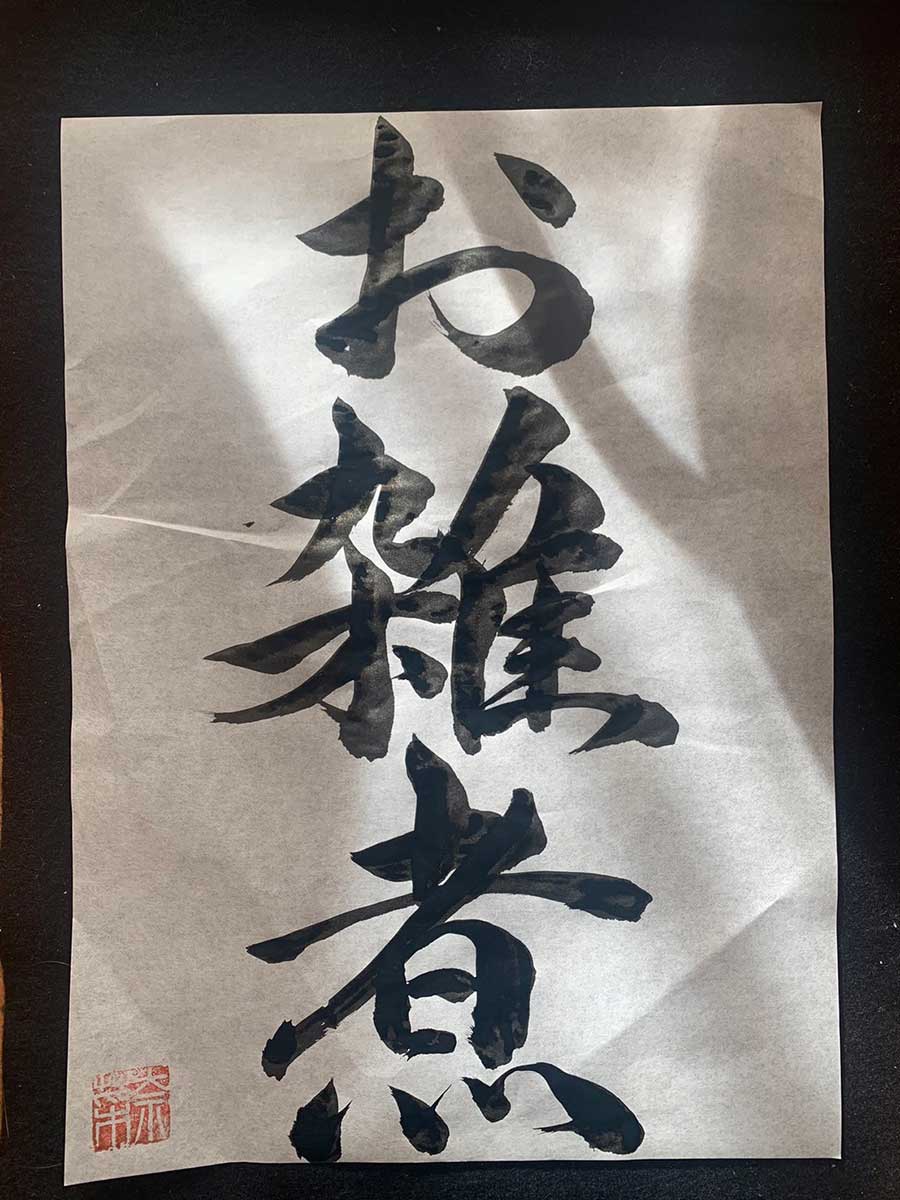 お雑煮